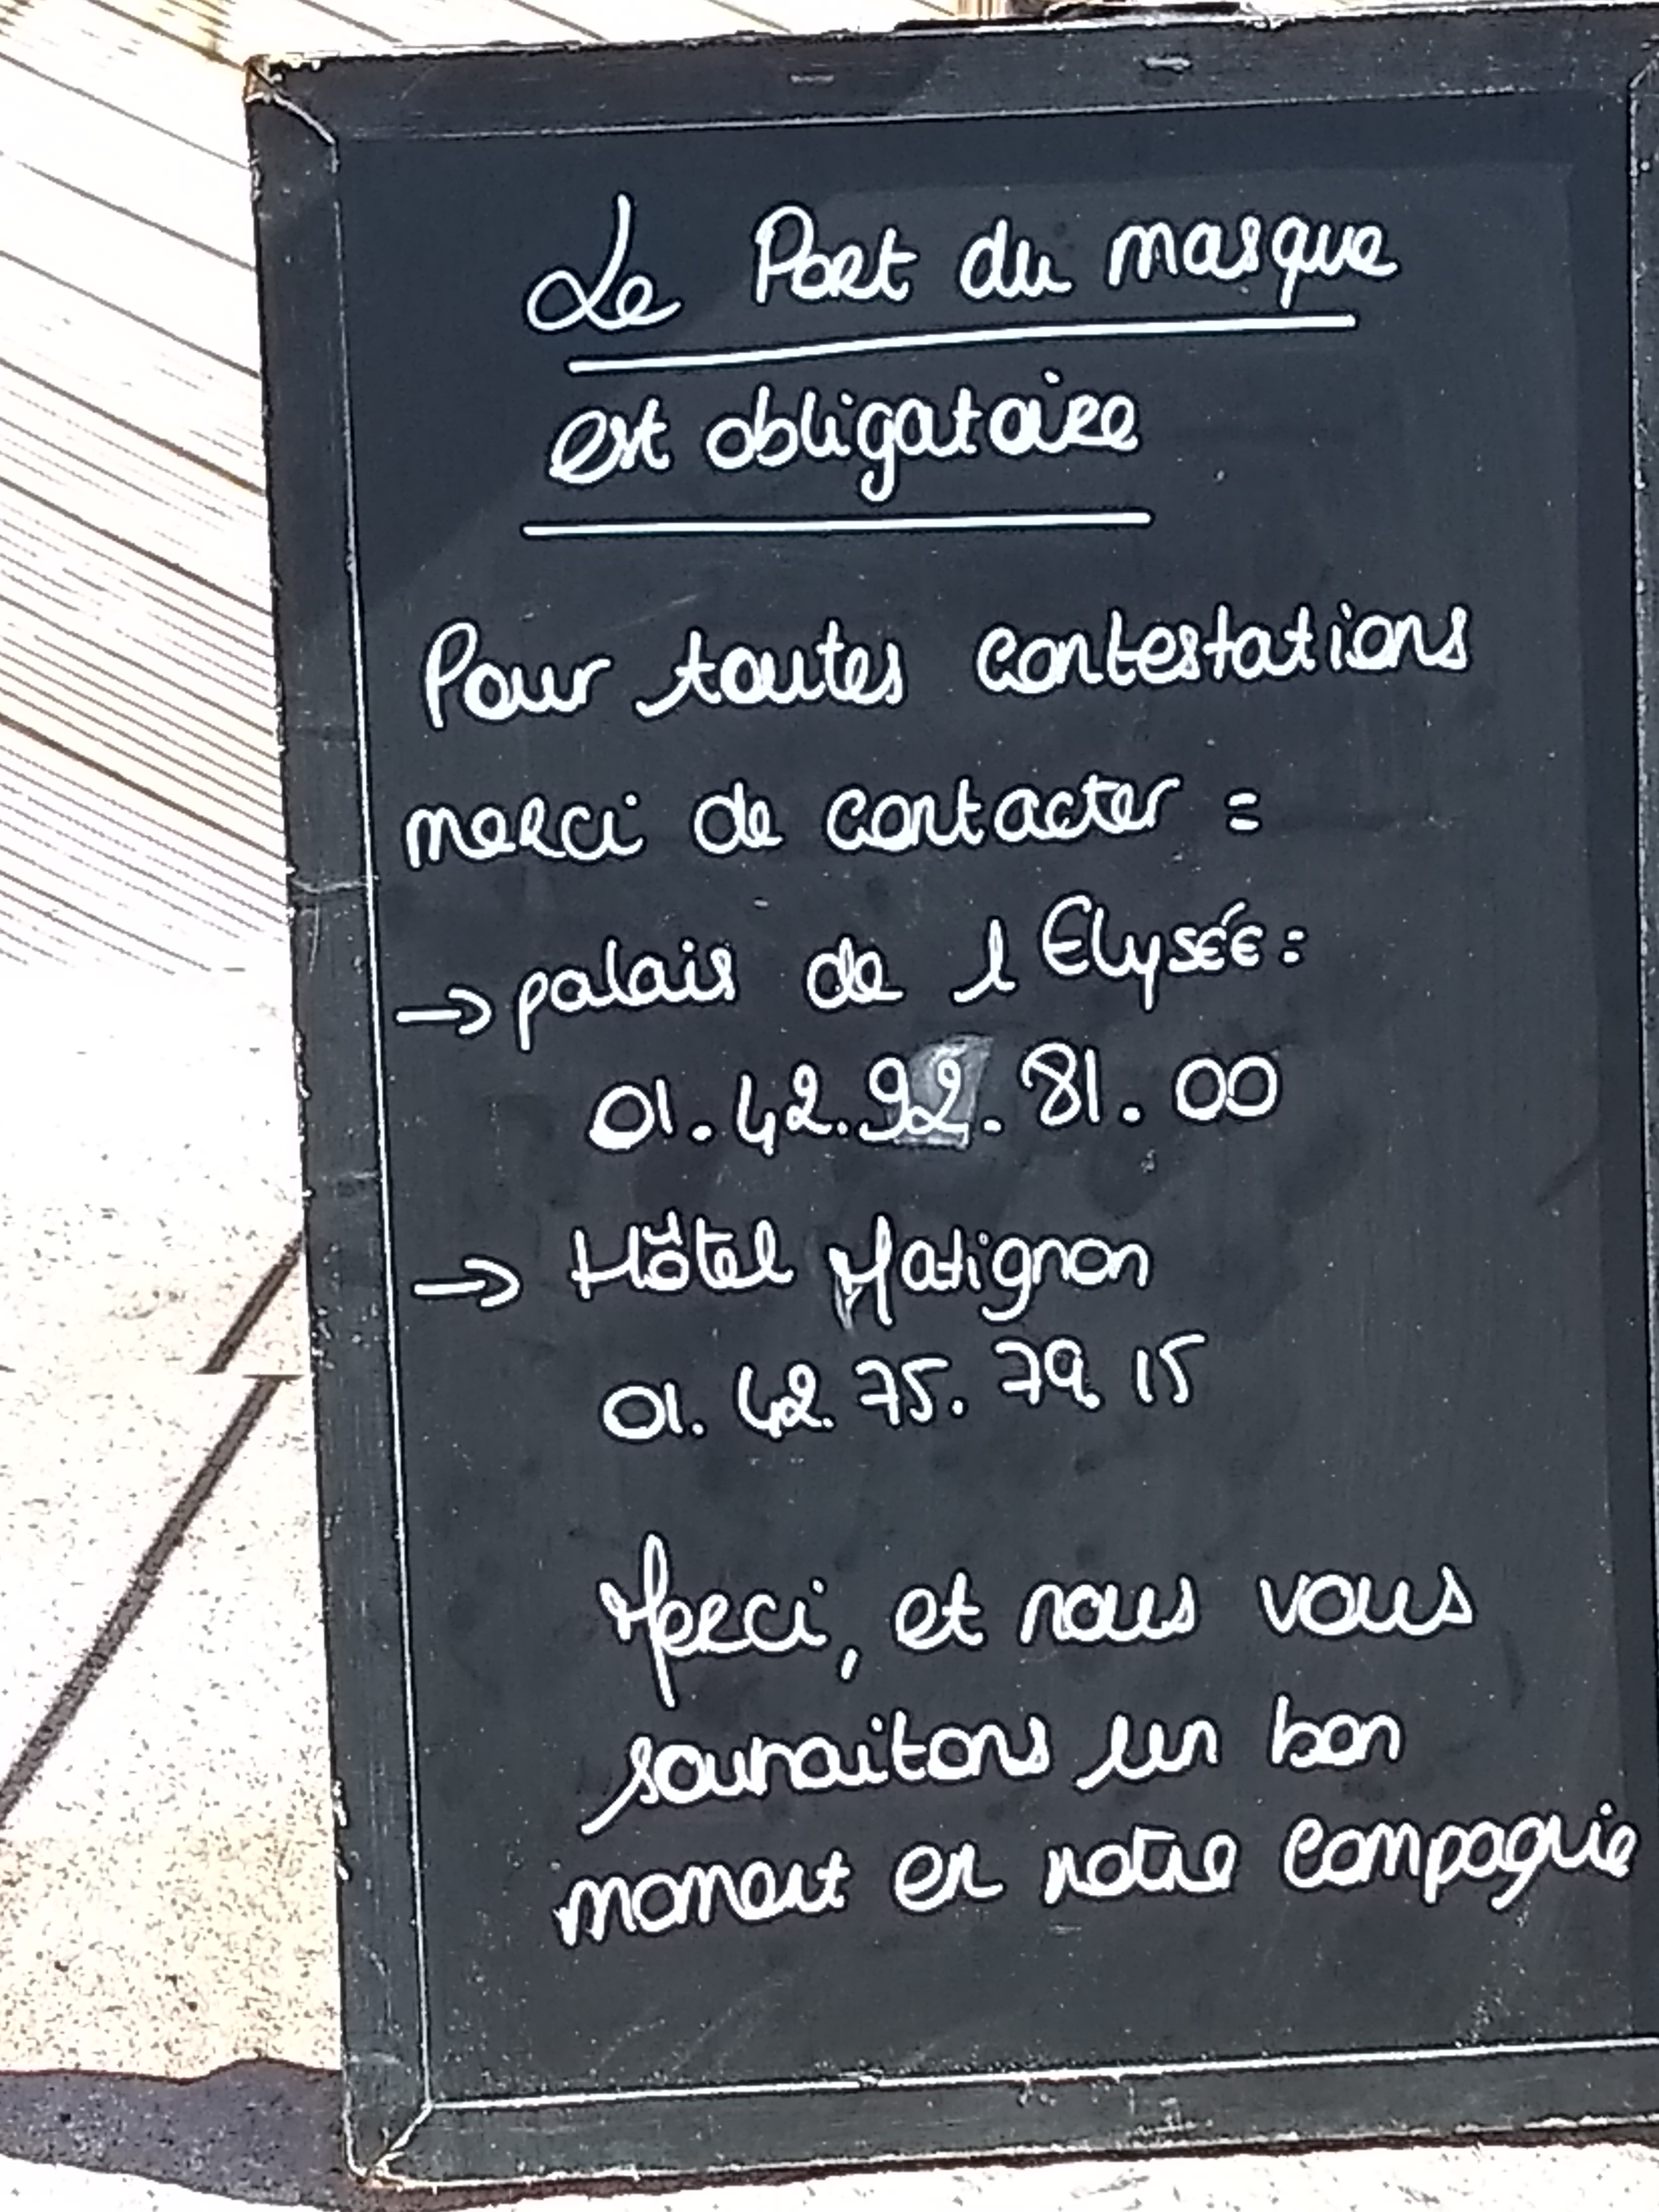 Le Port du masque
est obligatoire
Pour toutes contestations
merci de contacter =
→ palais de l Elysée :
01.42.92.81.00
→ Hôtel Matignon
01.42.75.79.15
Merci, et nous vous
souhaitons un bon
moment en notre compagnie